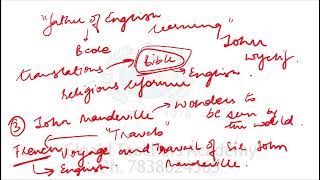 "father of English learning"
Bede
John Wyclif
translations → Bible → English
religious reference
③ John Mandeville → Wonders to be seen by the world
"Travels"
French
Voyage and Travail of Sir John Mandeville.
→ English